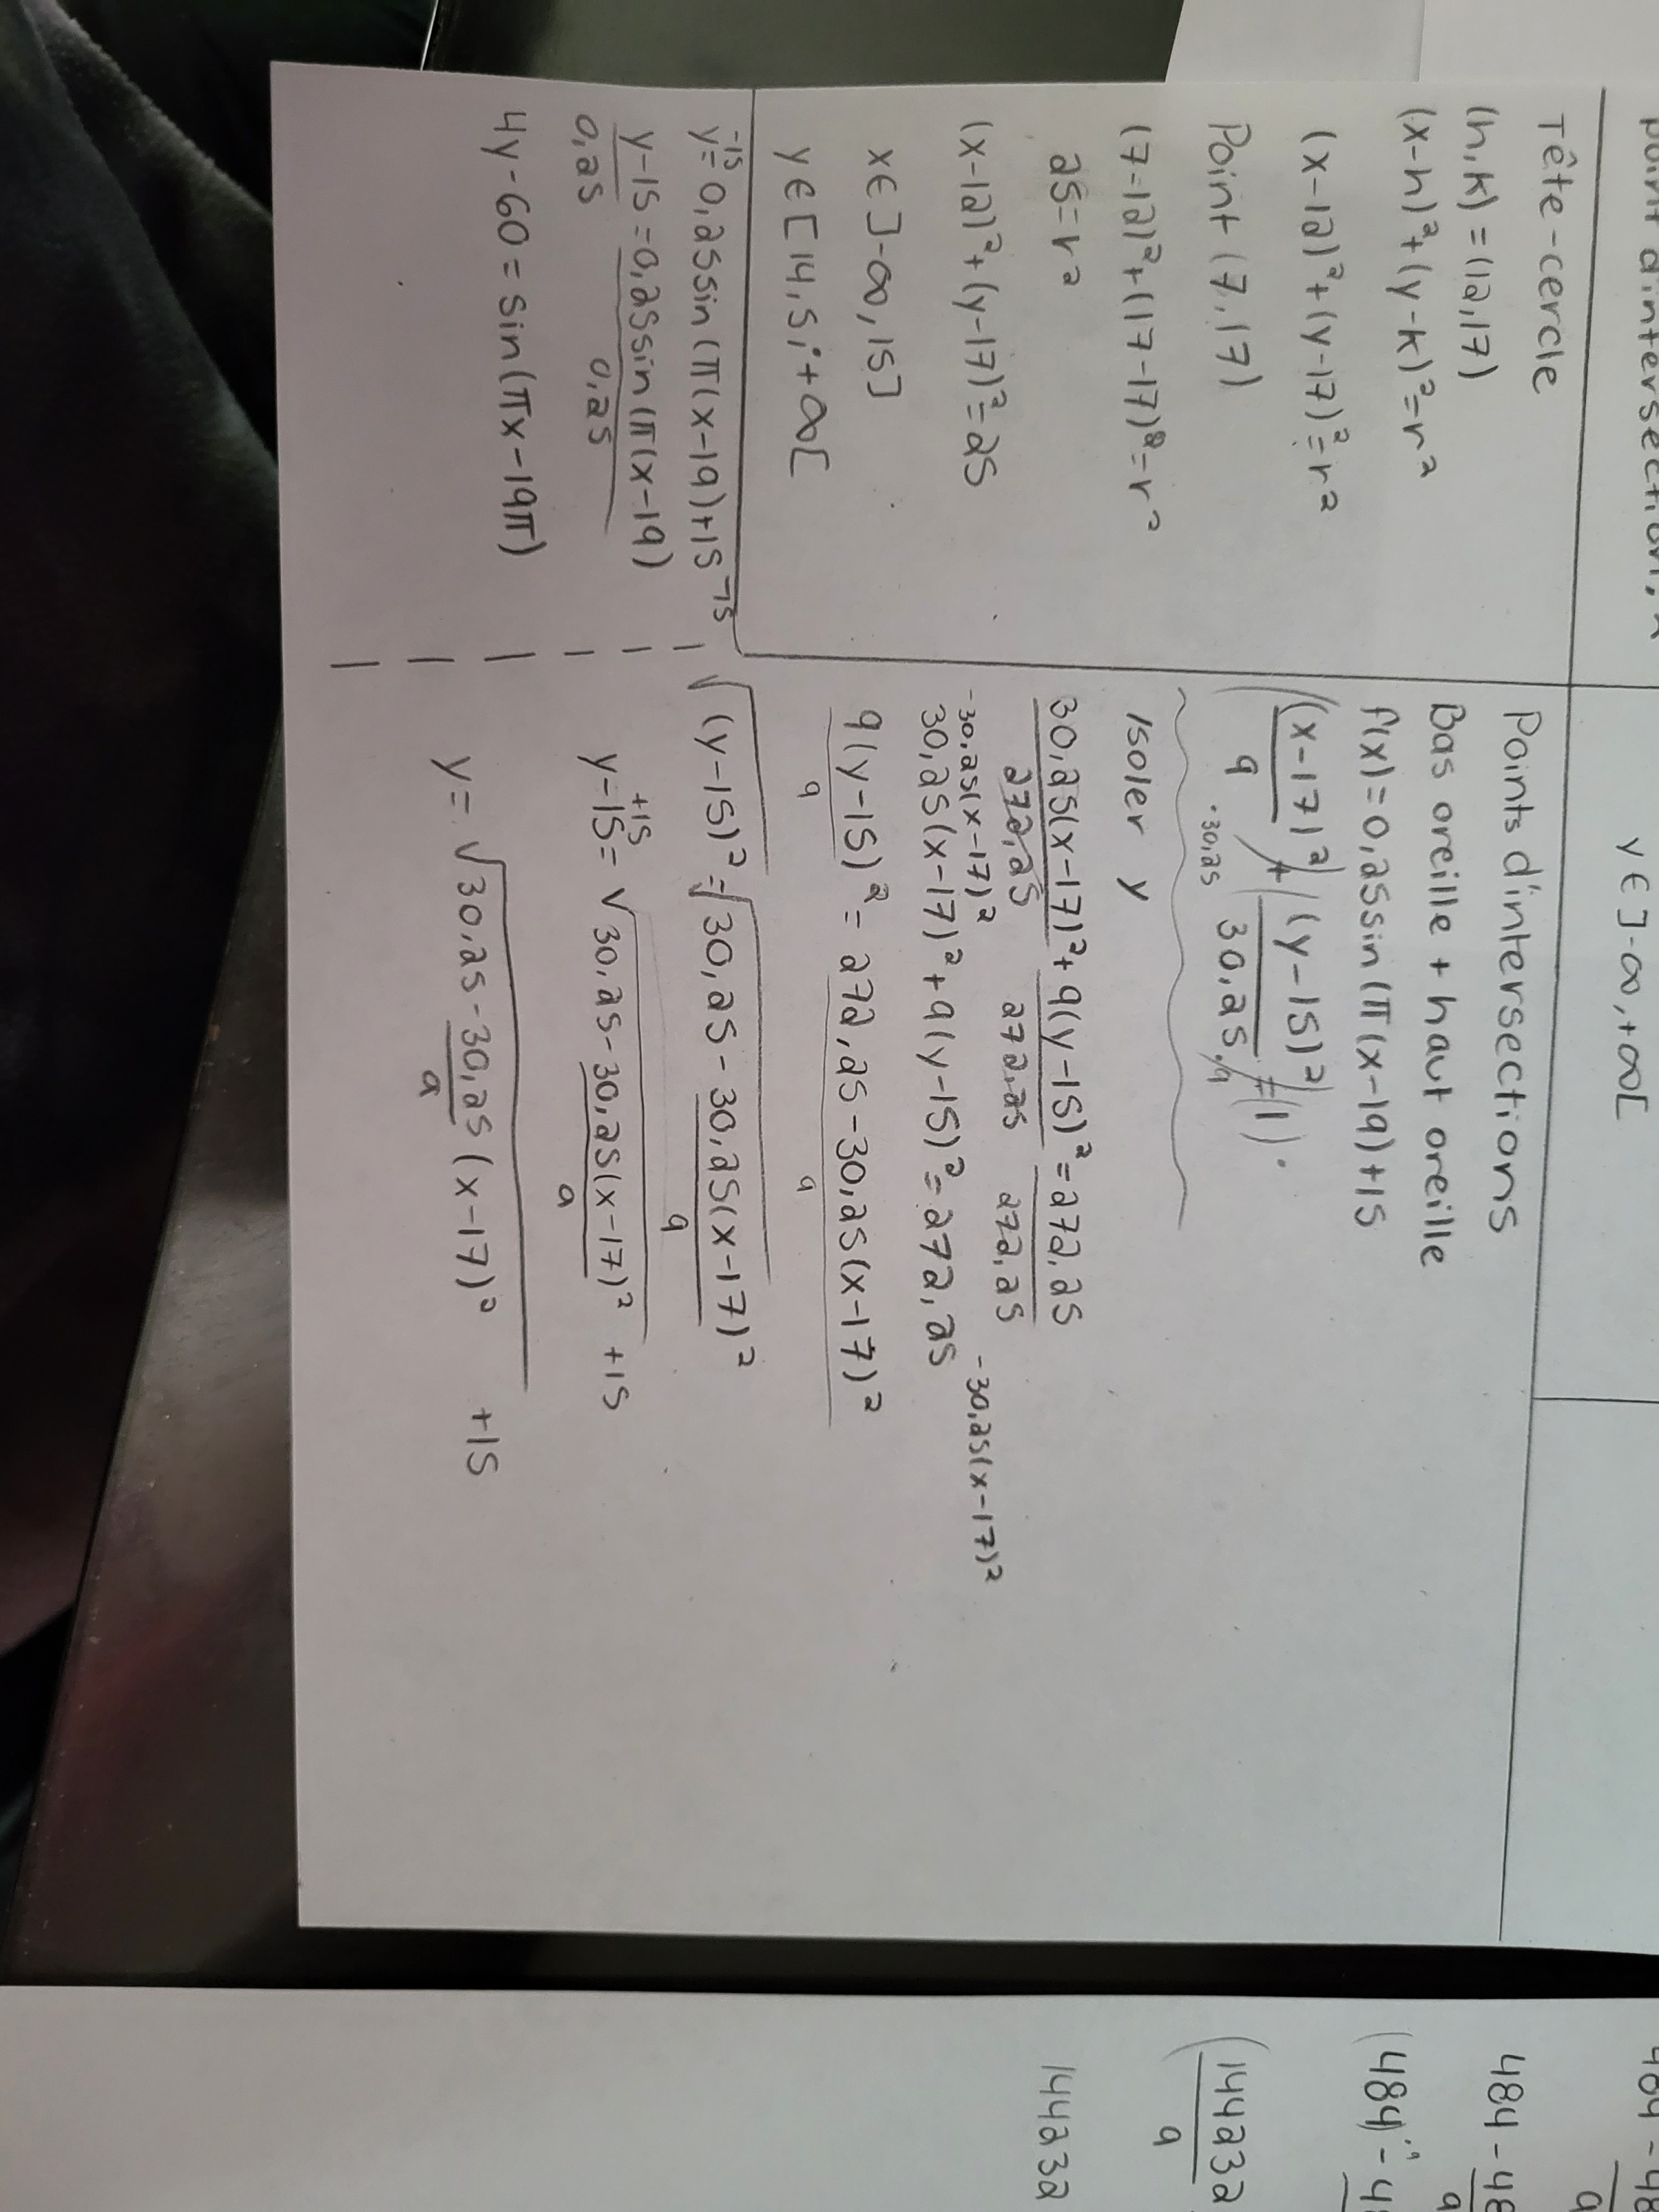 y ∈ ]-∞,+∞[
Tête-cercle
(h,k) = (12,17)
(x-h)²+(y-k)²=r²
(x-12)²+(y-17)²=r²
Point (7,17)
(7-12)²+(17-17)²=r²
25=r²
(x-12)²+(y-17)²=25
x∈]-∞,15]
y∈[14,5;+∞[
-15
y=0,25sin(π(x-19)+15 -15
y-15=0,25sin(π(x-19)
0,25 0,25
4y-60=sin(πx-19π)
Points d'intersections
Bas oreille + haut oreille
f(x)=0,25sin(π(x-19)+15
((x-17)²+(y-15)²=1).
9 ·30,25 30,25 ·9
Isoler y
30,25(x-17)²+9(y-15)²=272,25
272,25 272,25 272,25
-30,25(x-17)² -30,25(x-17)²
30,25(x-17)²+9(y-15)²=272,25
9(y-15)²=272,25-30,25(x-17)²
9 9
√(y-15)²=√30,25-30,25(x-17)²
9
+15
y-15=√30,25-30,25(x-17)² +15
9
y=√30,25-30,25(x-17)² +15
9
484-48
9
(484)·9-4
(144232
9
144232